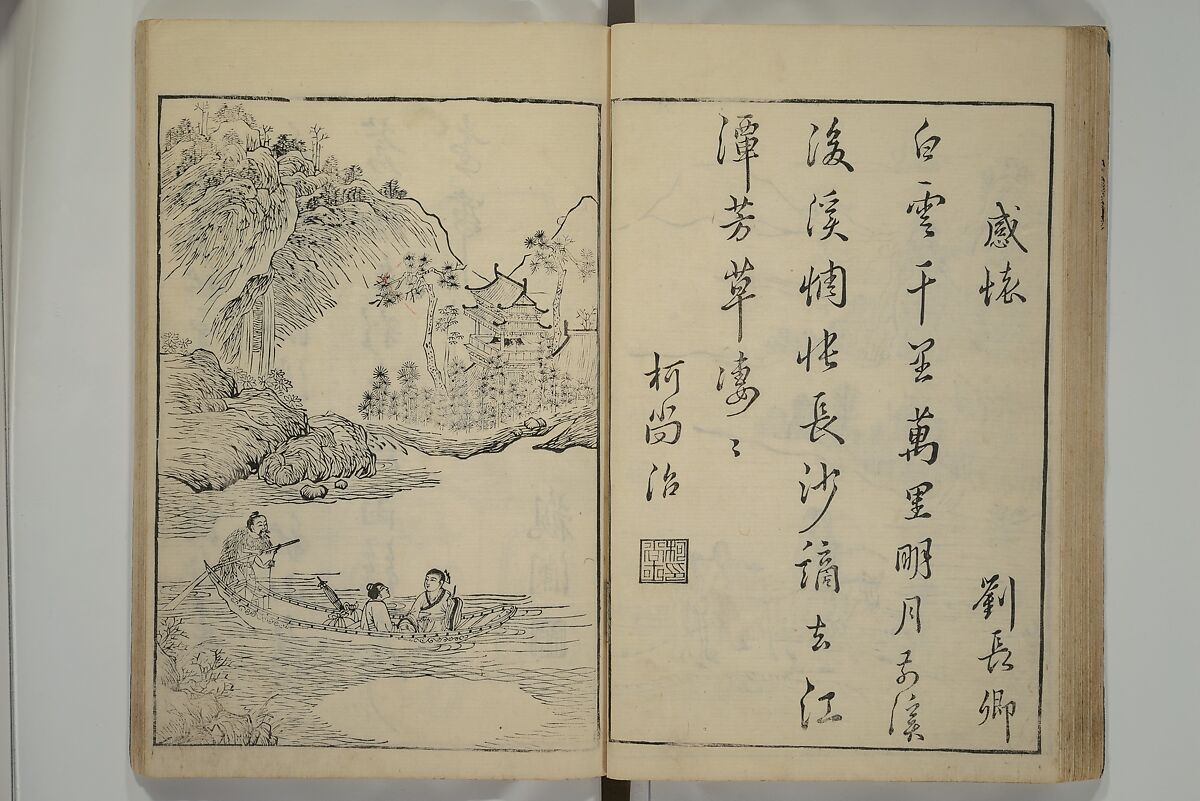 感懷　劉長卿
白雲千里萬里明月前溪
後溪惆悵長沙謫去江
潭芳草淒〻
柯尚治